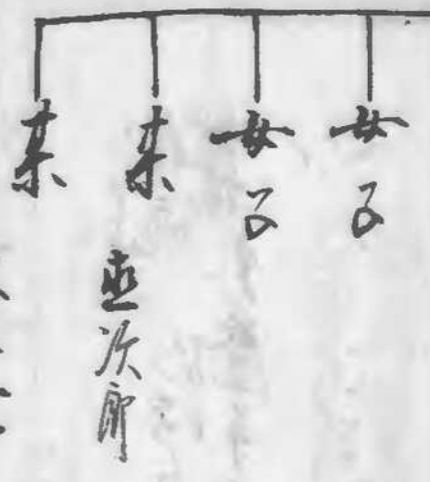 女子
女子
某
直次郎
某